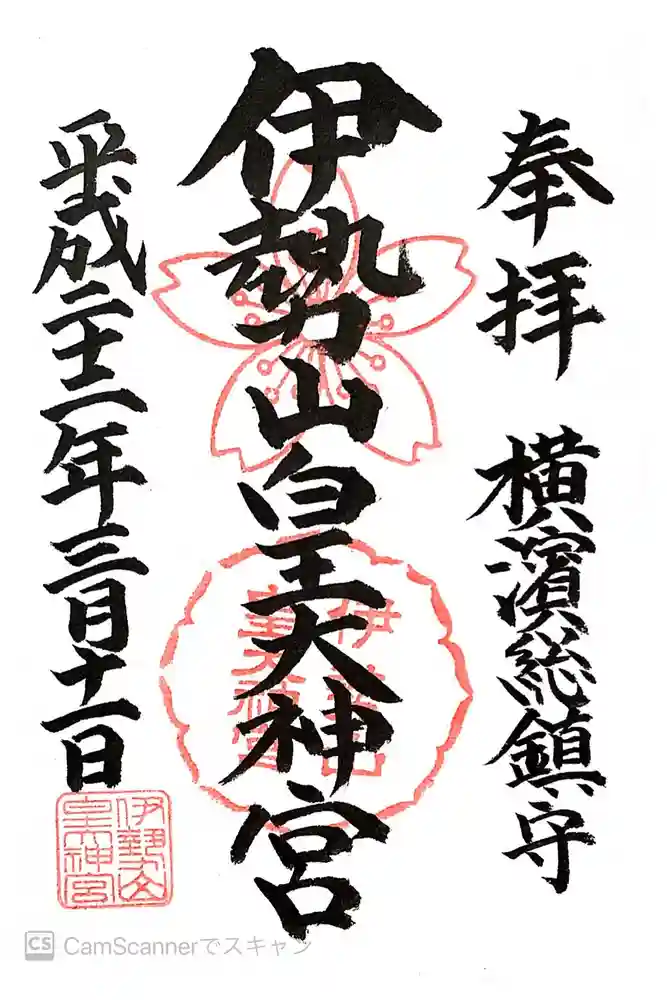 奉拝 横濱総鎮守
伊勢山皇大神宮
平成二十二年三月十一日
伊勢山
皇大神宮
伊勢山
皇大神宮
CS CamScannerでスキャン